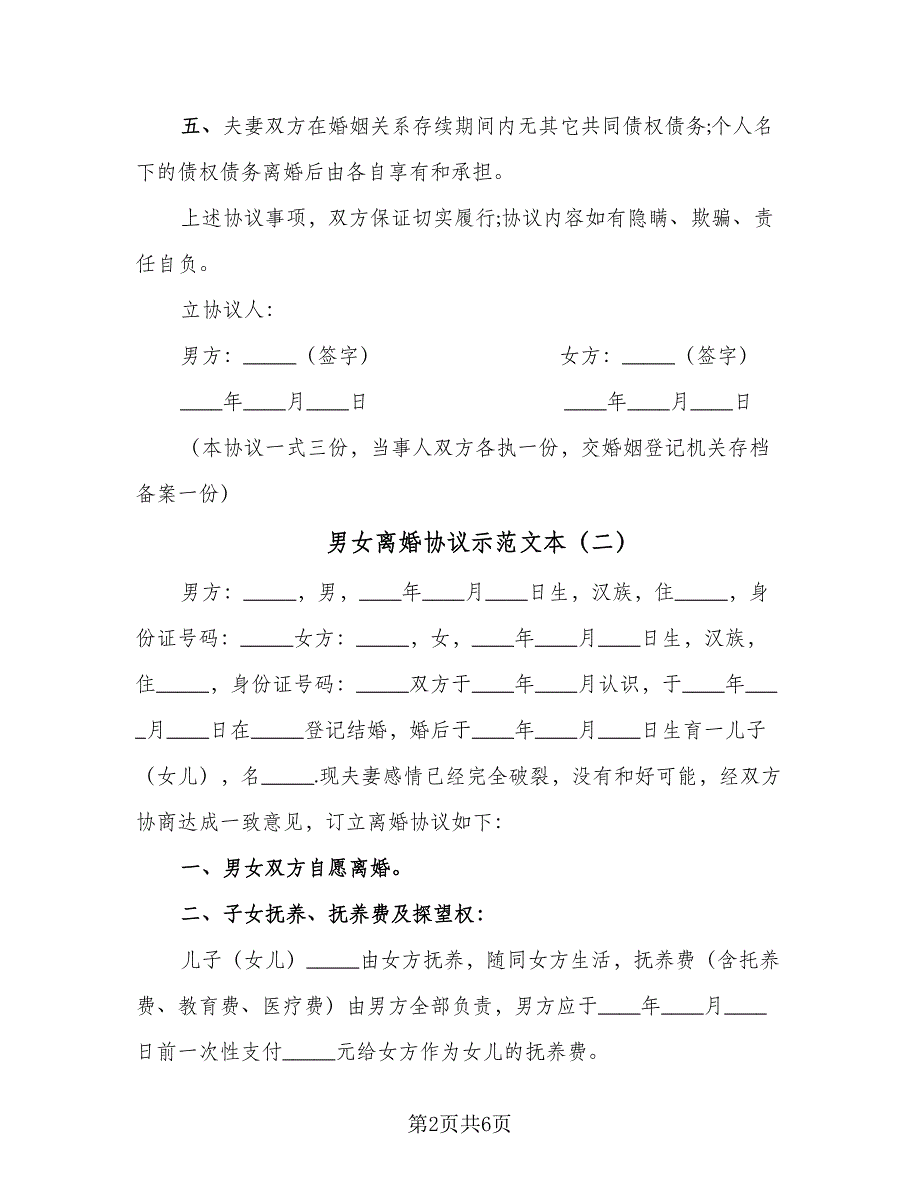 五、夫妻双方在婚姻关系存续期间内无其它共同债权债务;个人名
下的债权债务离婚后由各自享有和承担。
上述协议事项，双方保证切实履行;协议内容如有隐瞒、欺骗、责
任自负。
立协议人：
男方：_____（签字） 女方：_____（签字）
____年____月____日 ____年____月____日
（本协议一式三份，当事人双方各执一份，交婚姻登记机关存档
备案一份）
男女离婚协议示范文本（二）
男方：_____，男，____年____月____日生，汉族，住_____，身
份证号码：_____女方：_____，女，____年____月____日生，汉族，
住_____，身份证号码：_____双方于____年____月认识，于____年___
_月____日在_____登记结婚，婚后于____年____月____日生育一儿子
（女儿），名_____.现夫妻感情已经完全破裂，没有和好可能，经双方
协商达成一致意见，订立离婚协议如下：
一、男女双方自愿离婚。
二、子女抚养、抚养费及探望权：
儿子（女儿）_____由女方抚养，随同女方生活，抚养费（含托养
费、教育费、医疗费）由男方全部负责，男方应于____年____月____
日前一次性支付_____元给女方作为女儿的抚养费。
第2页共6页